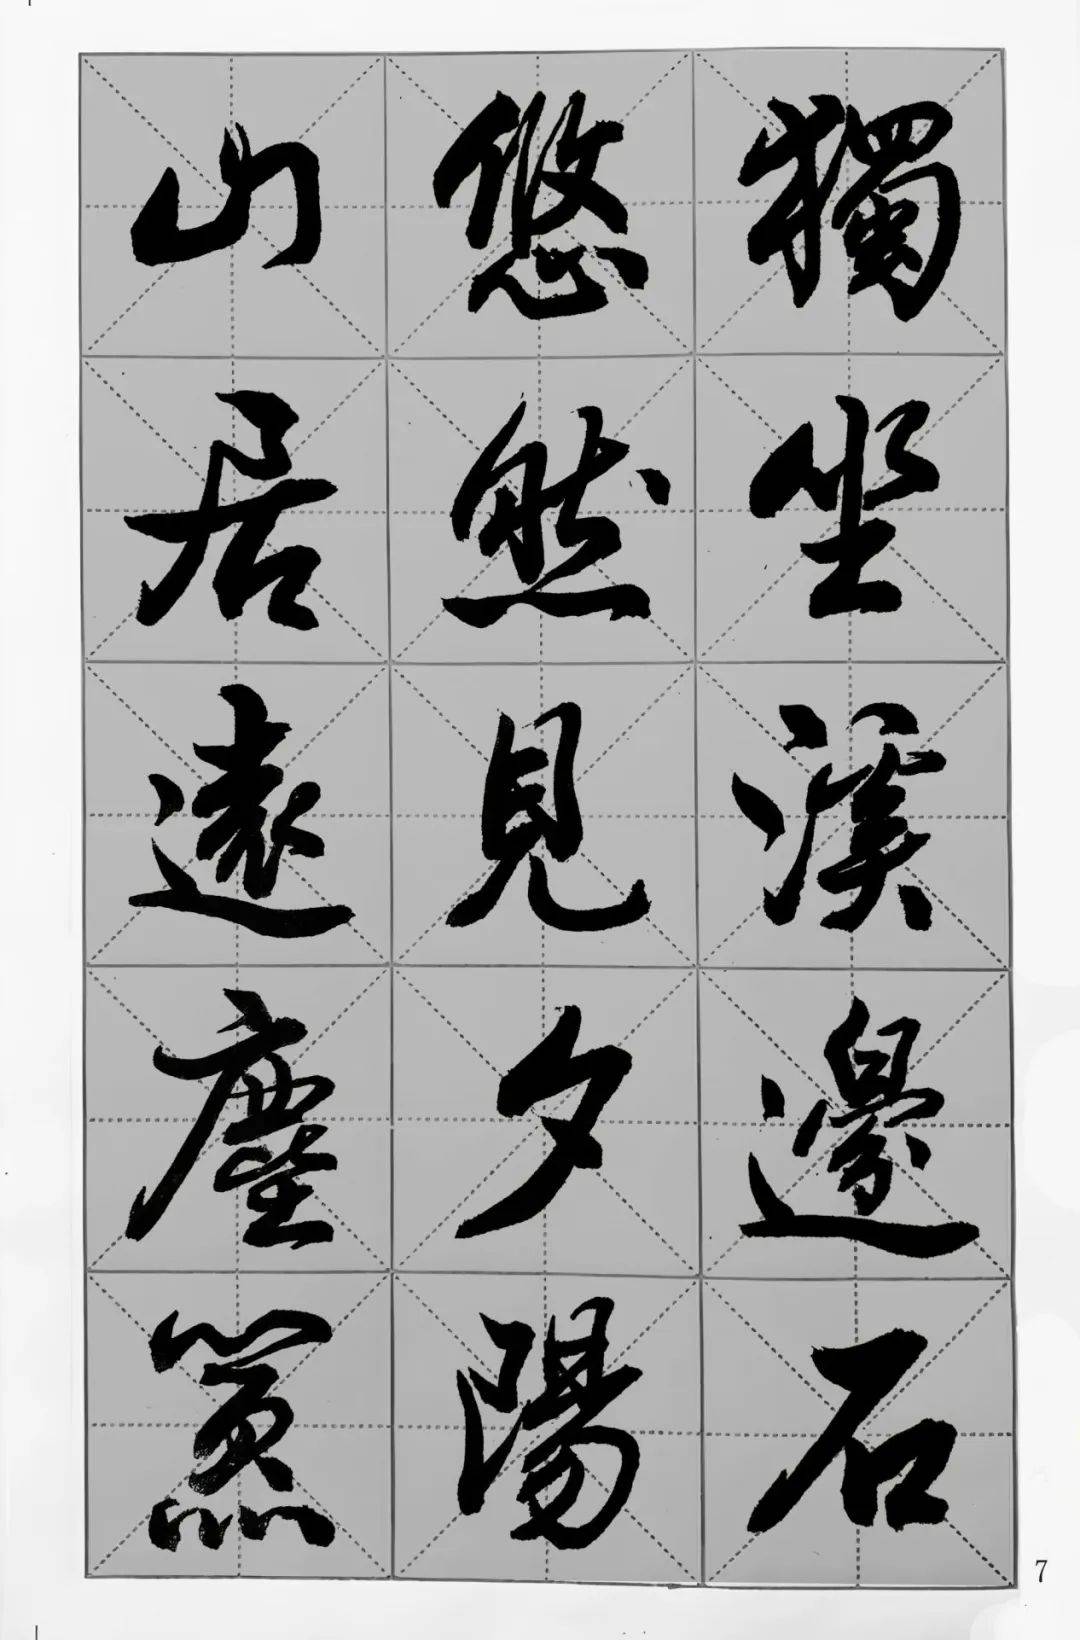 獨坐溪邊石
悠然見夕陽
山居遠塵囂
7